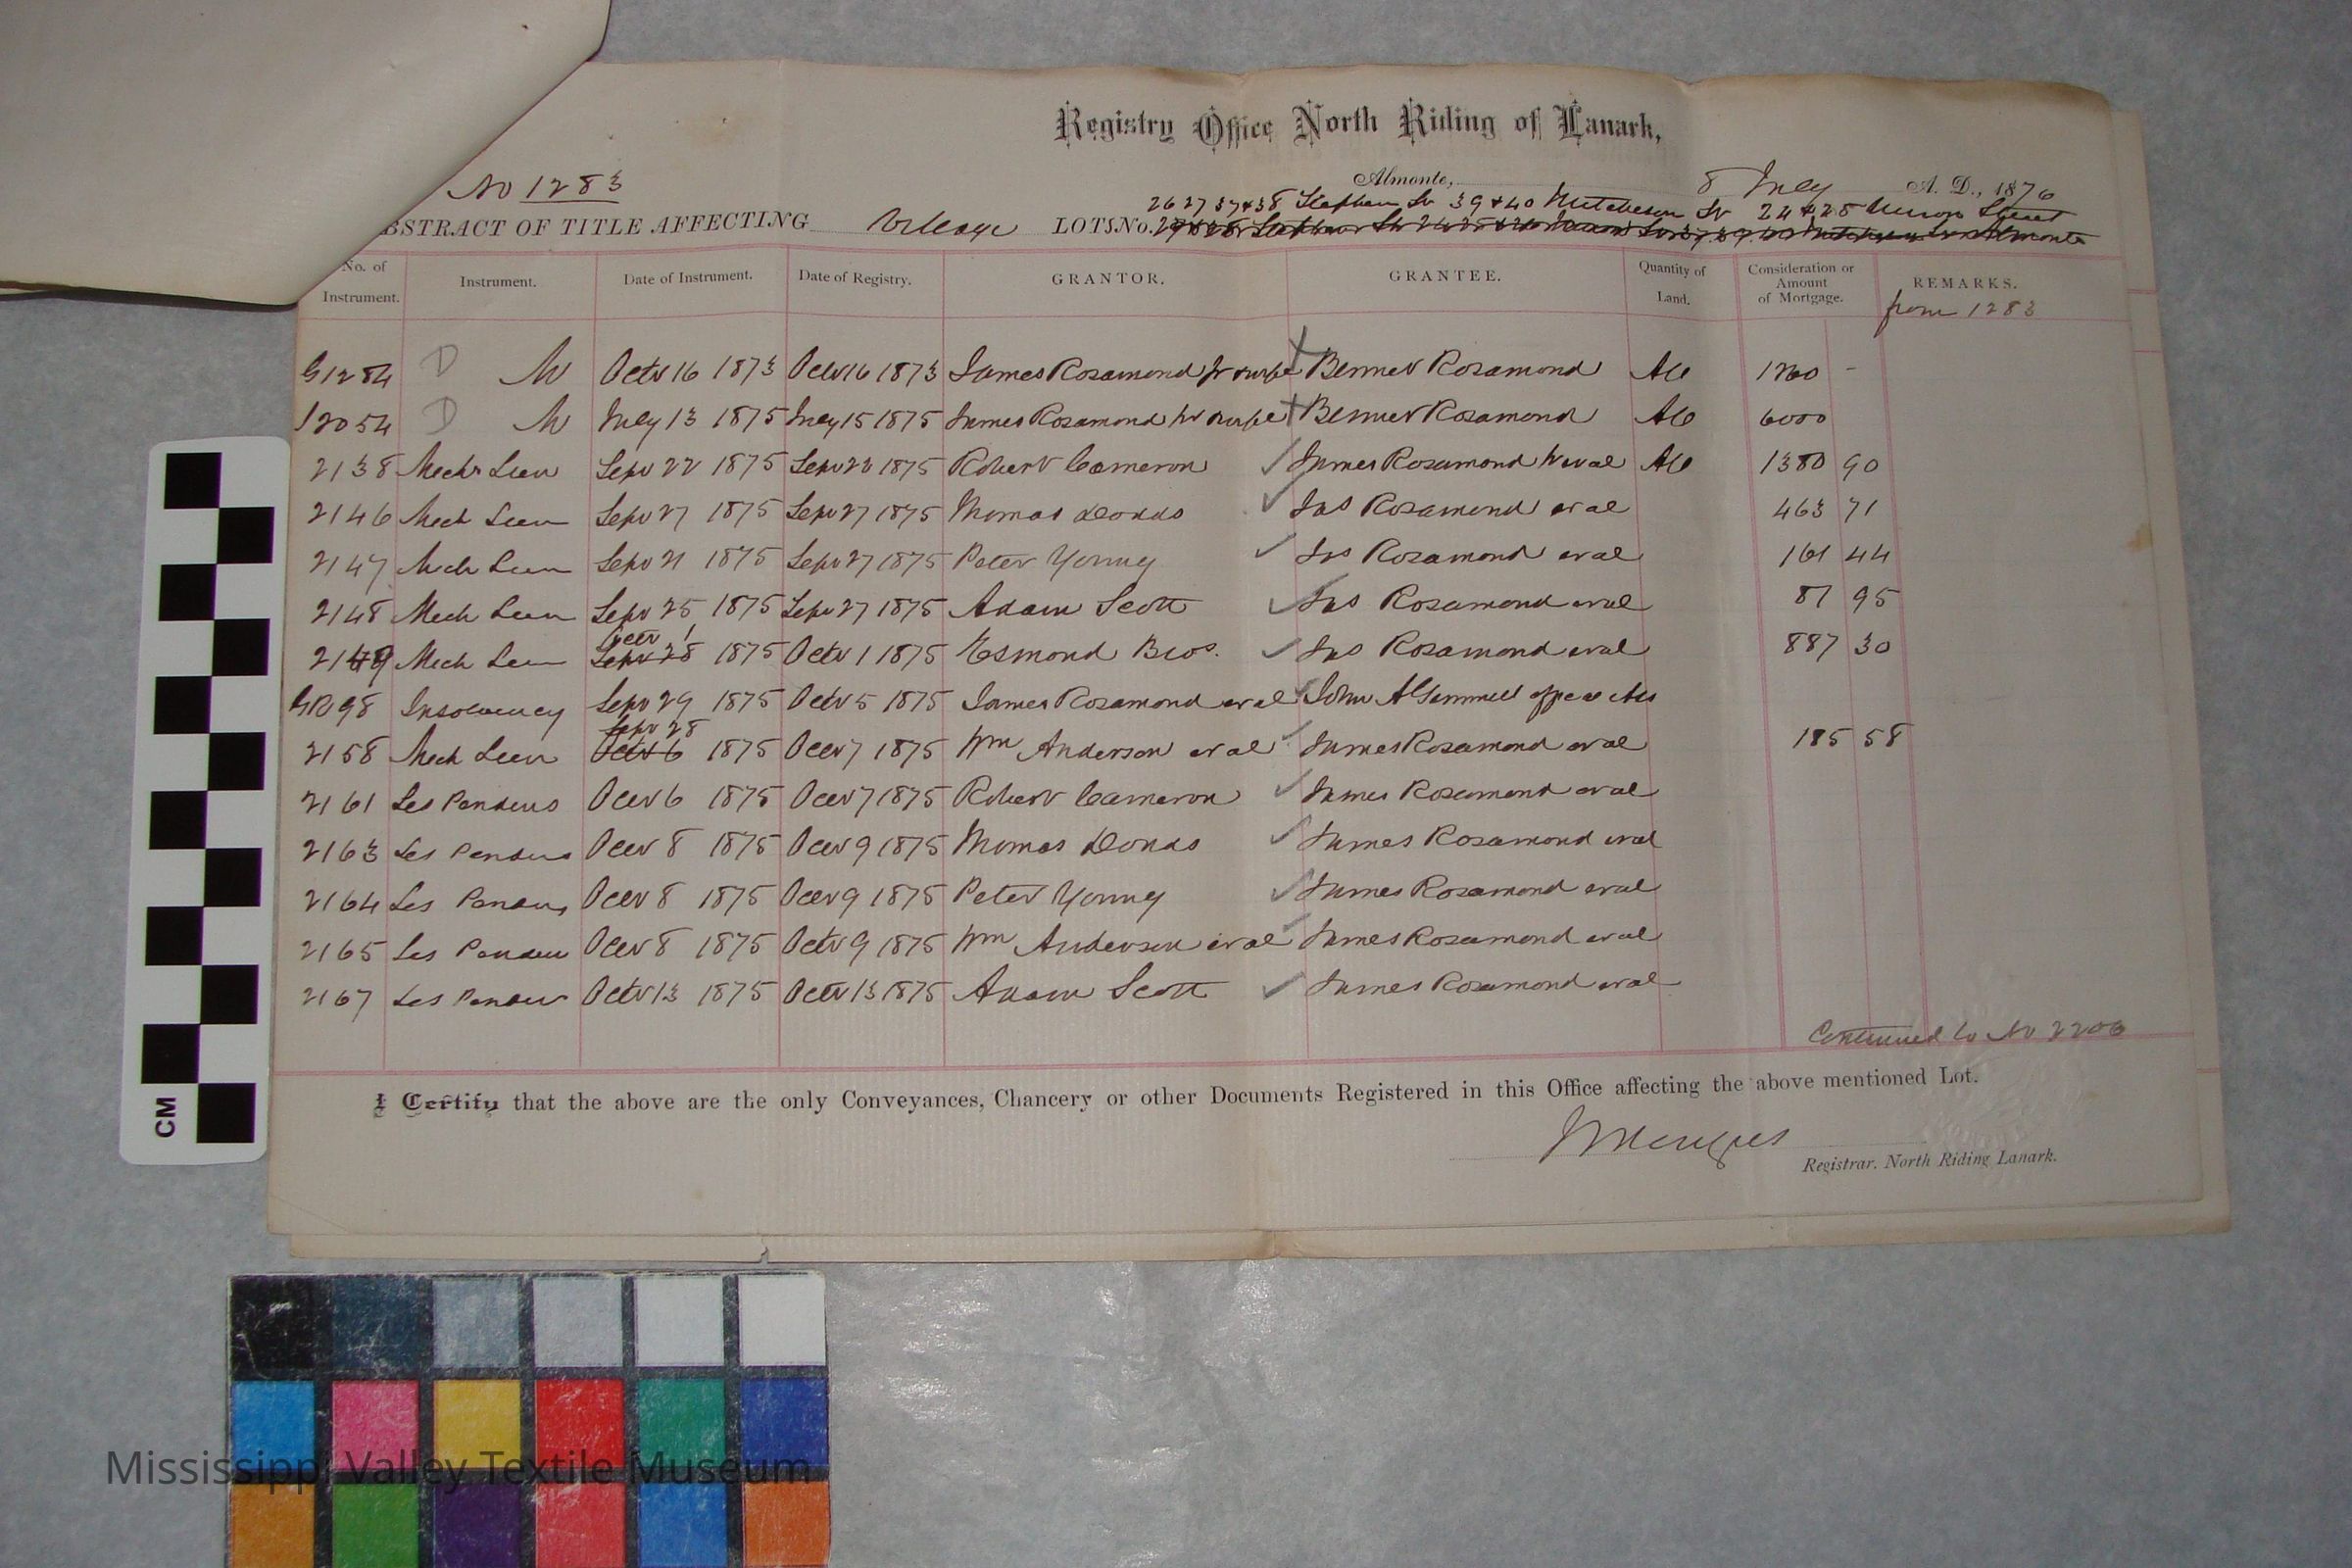 Registry Office North Riding of Lanark,
No 1283
Almonte, 8 July A. D., 1876
26 27 37 & 38 Stephen St 39 & 40 Mitcheson St 24 & 25 Union Street
BSTRACT OF TITLE AFFECTING Village LOTS No.
No. of Instrument. Instrument. Date of Instrument. Date of Registry. GRANTOR. GRANTEE. Quantity of Land. Consideration or Amount of Mortgage. REMARKS.
from 1283
G1284 D M Octr 16 1873 Octr 16 1873 James Rosamond Bennet Rosamond All
2054 D M July 13 1875 July 15 1875 James Rosamond Bennet Rosamond All 6000
2138 Mechs Lien Sept 22 1875 Sept 23 1875 Robert Cameron James Rosamond et al All 1380 90
2146 Mech Lien Sept 27 1875 Sept 27 1875 Thomas Dodds Jas Rosamond et al 463 71
2147 Mech Lien Sept 21 1875 Sept 27 1875 Peter Young Jas Rosamond et al 161 44
2148 Mech Lien Sept 25 1875 Sept 27 1875 Adam Scott Jas Rosamond et al 81 95
Octr 1
2149 Mech Lien Sept 28 1875 Octr 1 1875 Esmond Bros. Jas Rosamond et al 887 30
GR98 Insolvency Sept 29 1875 Octr 5 1875 James Rosamond et al John A Gemmill
Sept 28
2158 Mech Lien Octr 6 1875 Octr 7 1875 Wm Anderson et al James Rosamond et al 185 58
2161 Les Pendens Octr 6 1875 Octr 7 1875 Robert Cameron James Rosamond et al
2163 Les Pendens Octr 8 1875 Octr 9 1875 Thomas Dodds James Rosamond et al
2164 Les Pendens Octr 8 1875 Octr 9 1875 Peter Young James Rosamond et al
2165 Les Pendens Octr 8 1875 Octr 9 1875 Wm Anderson et al James Rosamond et al
2167 Les Pendens Octr 13 1875 Octr 13 1875 Adam Scott James Rosamond et al
Continued to No 2206
I Certify that the above are the only Conveyances, Chancery or other Documents Registered in this Office affecting the above mentioned Lot.
Registrar. North Riding Lanark.
CM
Mississippi Valley Textile Museum